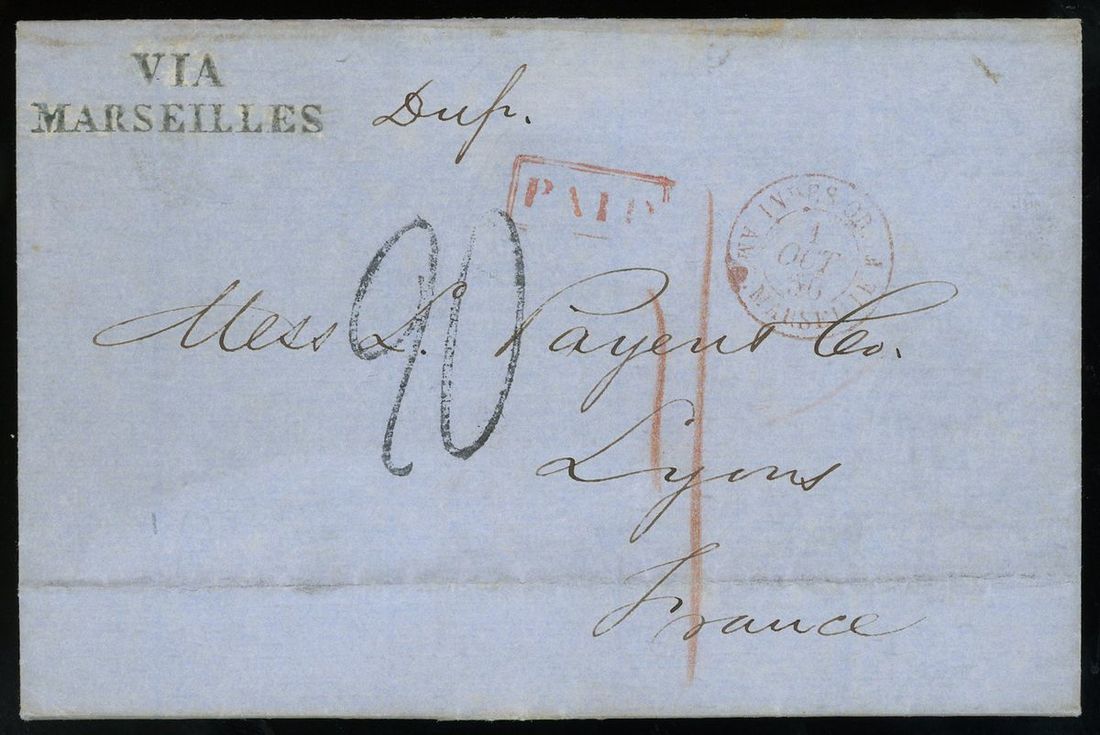 VIA
MARSEILLES
Dup.
PAID
1
OCT
56
MARSEILLE
90
Mess L. Payent Co.
Lyons
France